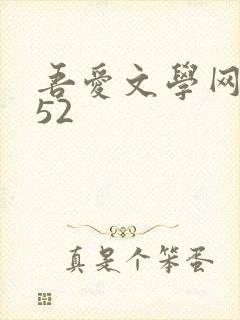 吾愛文學网
52
真是个笨蛋